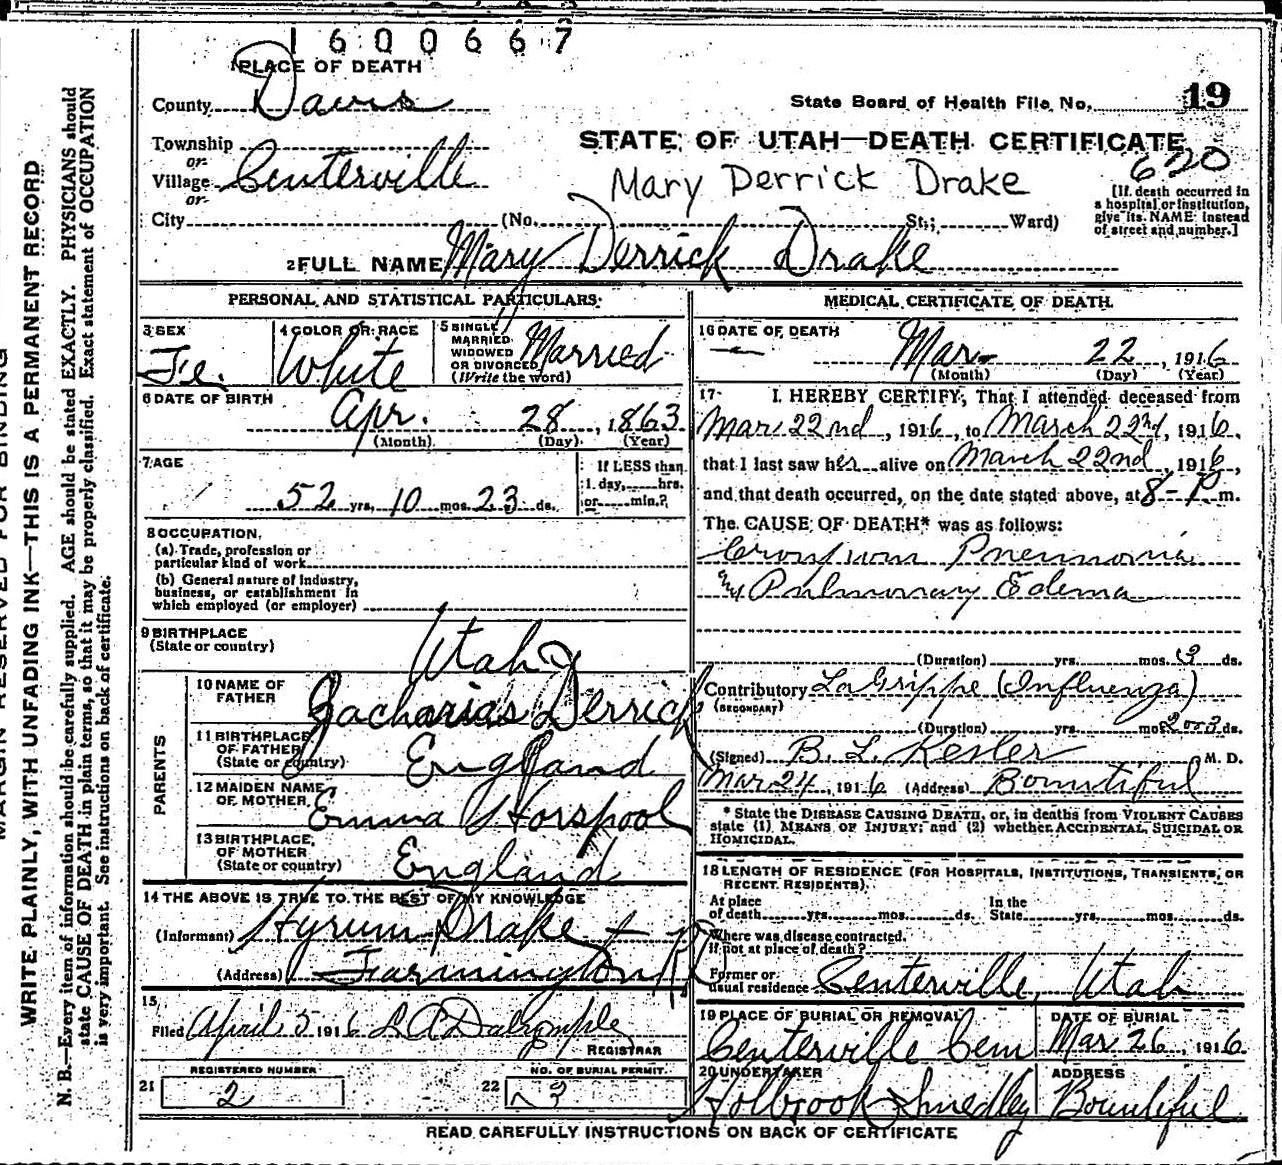 1600667
PLACE OF DEATH
County Davis
State Board of Health File No. 19
Township
or
Village Centerville
or
STATE OF UTAH—DEATH CERTIFICATE
620
Mary Derrick Drake
[If death occurred in a hospital or institution, give its NAME instead of street and number.]
City (No. St.; Ward)
2 FULL NAME Mary Derrick Drake
PERSONAL AND STATISTICAL PARTICULARS
3 SEX Fe.
4 COLOR OR RACE White
5 SINGLE MARRIED WIDOWED OR DIVORCED (Write the word) Married
6 DATE OF BIRTH Apr. 28, 1863
(Month) (Day) (Year)
7 AGE 52 yrs. 10 mos. 23 ds.
If LESS than 1 day, hrs. or min.?
8 OCCUPATION
(a) Trade, profession or particular kind of work
(b) General nature of industry, business, or establishment in which employed (or employer)
9 BIRTHPLACE (State or country) Utah
PARENTS
10 NAME OF FATHER Zacharias Derrick
11 BIRTHPLACE OF FATHER (State or country) England
12 MAIDEN NAME OF MOTHER Emma Horspool
13 BIRTHPLACE OF MOTHER (State or country) England
14 THE ABOVE IS TRUE TO THE BEST OF MY KNOWLEDGE
(Informant) Hyrum Drake
(Address) Farmington
15
Filed April 5 1916 L A Dalrymple
REGISTRAR
REGISTERED NUMBER
21 2
NO. OF BURIAL PERMIT
22 3
MEDICAL CERTIFICATE OF DEATH
16 DATE OF DEATH Mar 22, 1916
(Month) (Day) (Year)
17 I HEREBY CERTIFY, That I attended deceased from
Mar 22nd, 1916, to March 22nd, 1916,
that I last saw her alive on March 22nd, 1916,
and that death occurred, on the date stated above, at 8-P m.
The CAUSE OF DEATH* was as follows:
Pneumonia
Pulmonary Edema
(Duration) yrs. mos. 3 ds.
Contributory La Grippe (Influenza)
(SECONDARY)
(Duration) yrs. mos. 2 or 3 ds.
(Signed) B. L. Kesler M. D.
Mar 24, 1916 (Address) Bountiful
* State the DISEASE CAUSING DEATH, or, in deaths from VIOLENT CAUSES
state (1) MEANS OF INJURY; and (2) whether ACCIDENTAL, SUICIDAL OR
HOMICIDAL.
18 LENGTH OF RESIDENCE (FOR HOSPITALS, INSTITUTIONS, TRANSIENTS, OR
RECENT RESIDENTS).
At place of death yrs. mos. ds. In the State yrs. mos. ds.
Where was disease contracted.
If not at place of death?
Former or usual residence Centerville, Utah
19 PLACE OF BURIAL OR REMOVAL Centerville Cem
DATE OF BURIAL Mar 26, 1916
20 UNDERTAKER Holbrook Smedley
ADDRESS Bountiful
READ CAREFULLY INSTRUCTIONS ON BACK OF CERTIFICATE
MARGIN RESERVED FOR BINDING
WRITE PLAINLY, WITH UNFADING INK—THIS IS A PERMANENT RECORD
N. B.—Every item of information should be carefully supplied. AGE should be stated EXACTLY. PHYSICIANS should
state CAUSE OF DEATH in plain terms, so that it may be properly classified. Exact statement of OCCUPATION
is very important. See instructions on back of certificate.